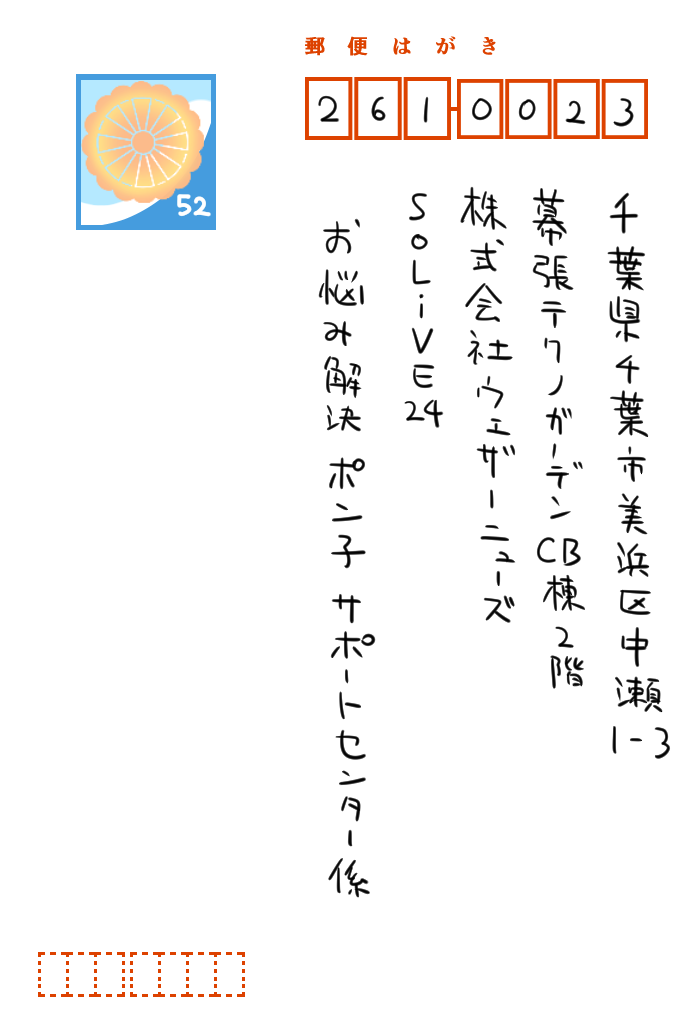 郵便はがき
261-0023
52
千葉県千葉市美浜区中瀬1-3
幕張テクノガーデンCB棟2階
株式会社ウェザーニューズ
SOLiVE24
お悩み解決 ポン子 サポートセンター係